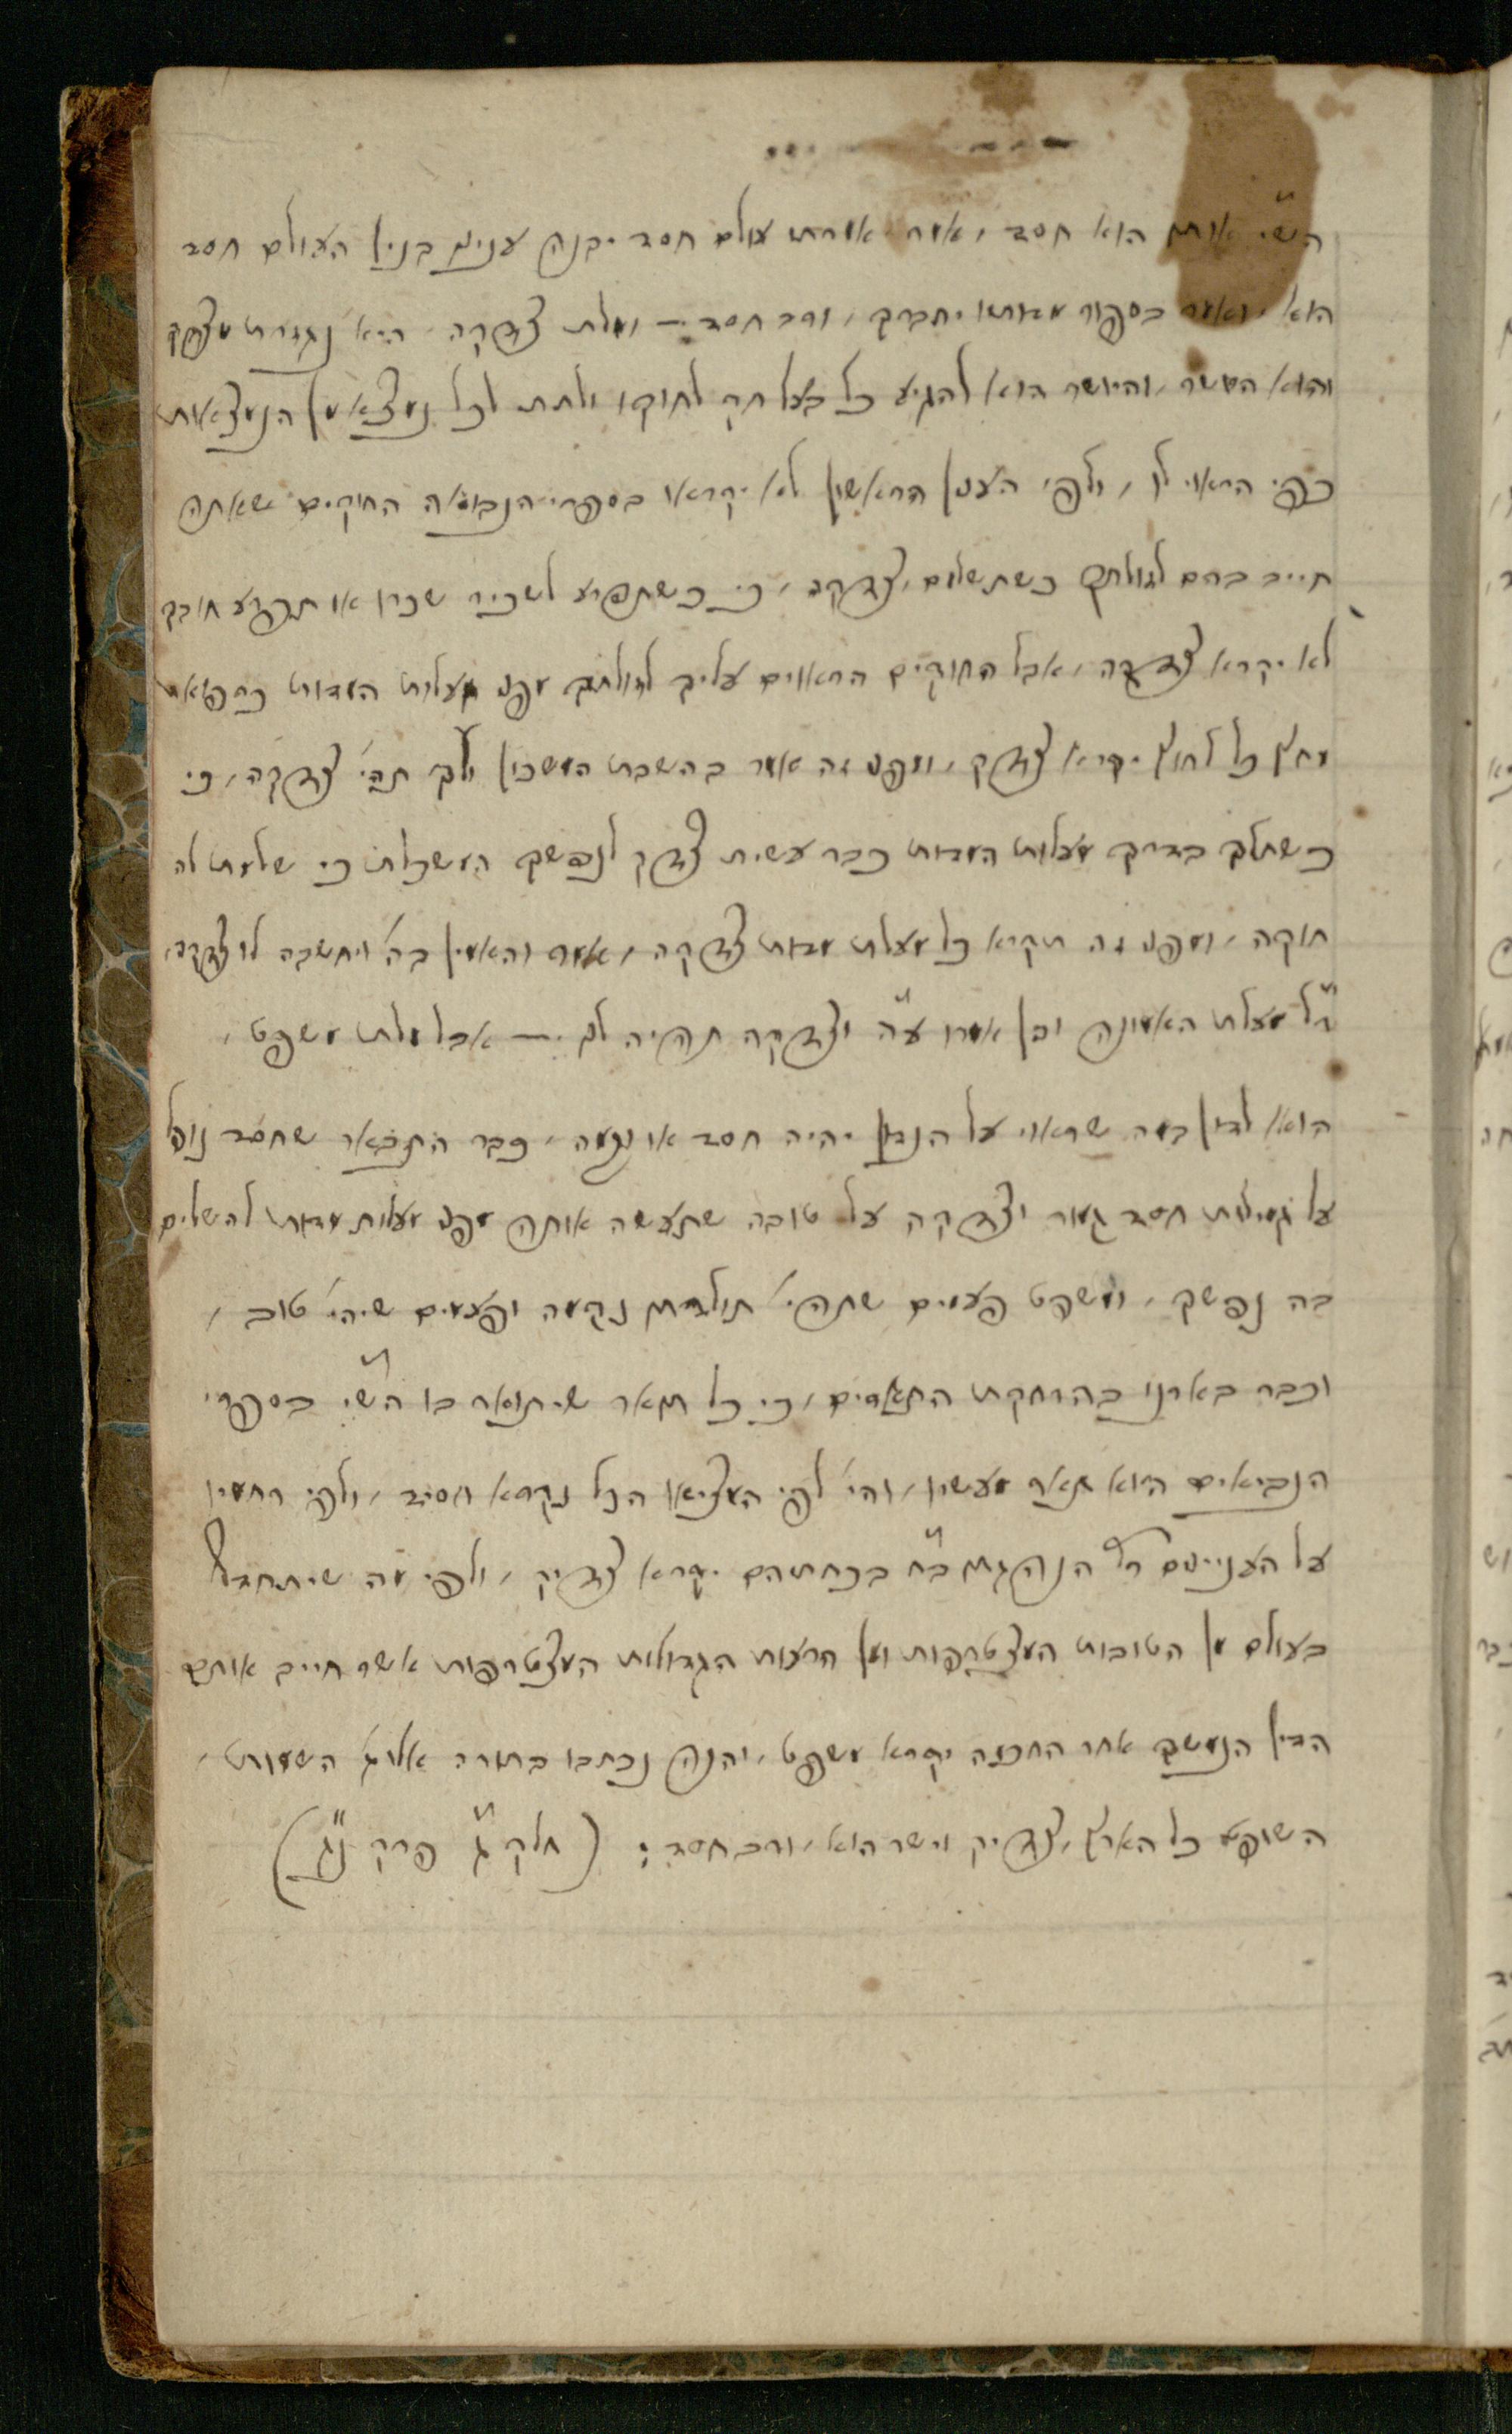 הש״י אותם הוא חסד, אמר אמרתי עולם חסד יבנה ענינו בנין העולם חסד
הוא, ואמר בספור מדותיו יתברך, ורב חסד — ומלת צדקה היא נגזרת מצדק
והוא היושר, והיושר הוא להגיע כל בעל חק לחוקו ולתת לכל נמצא מן הנמצאות
כפי הראוי לו, ולפי הענין הראשון לא יקראו בספרי הנבואה החוקים שאתה
חייב בהם לזולתך כשתשלום צדקה, כי כשתפרע לשכיר שכרו או תפרע חובך
לא יקרא צדקה, אבל החוקים הראוים עליך לזולתך מפני מעלות המדות כרפואת
מחץ כל לחוץ יקרא צדקה, ומפני זה אמר בהשבת המשכון ולך תהי׳ צדקה, כי
כשתלך בדרך מעלות המדות כבר עשית צדק לנפשך המשכלת כי שלמת לה
חוקה, ומפני זה תקרא כל מעלת מדות צדקה, אמר והאמין בה׳ ויחשבה לו צדקה,
ר״ל מעלת האמונה וכן אמרו ע״ה וצדקה תהיה לנו — אבל מלת משפט,
הוא לדון במה שראוי על הנדון יהיה חסד או נקמה, כבר התבאר שחסד נופל
על גמילות חסד גמור וצדקה על טובה שתעשה אותה מפני מעלות מדות להשלים
בה נפשך, ומשפט פעמים שתהי׳ תולדתו נקמה ופעמים שיהי׳ טוב,
וכבר בארנו בהרחקת התארים, כי כל תאר שיתואר בו הש״י בספרי
הנביאים הוא תאר מעשיו, והי׳ לפי המציאו הכל נקרא חסיד, ולפי רחמיו
על העניים ר״ל הנהגתו ב״ח בכחותיהם יקרא צדיק, ולפי מה שיתחדש
בעולם מן הטובות המצטרפות ומן הרעות הגדולות המצטרפות אשר חייב אותם
הדין הנמשך אחר החכמה יקרא משפט, והנה נכתבו בתורה אלו ג׳ השמות,
השופט כל הארץ, צדיק וישר הוא, ורב חסד: (חלק ג׳ פרק נ״ג)